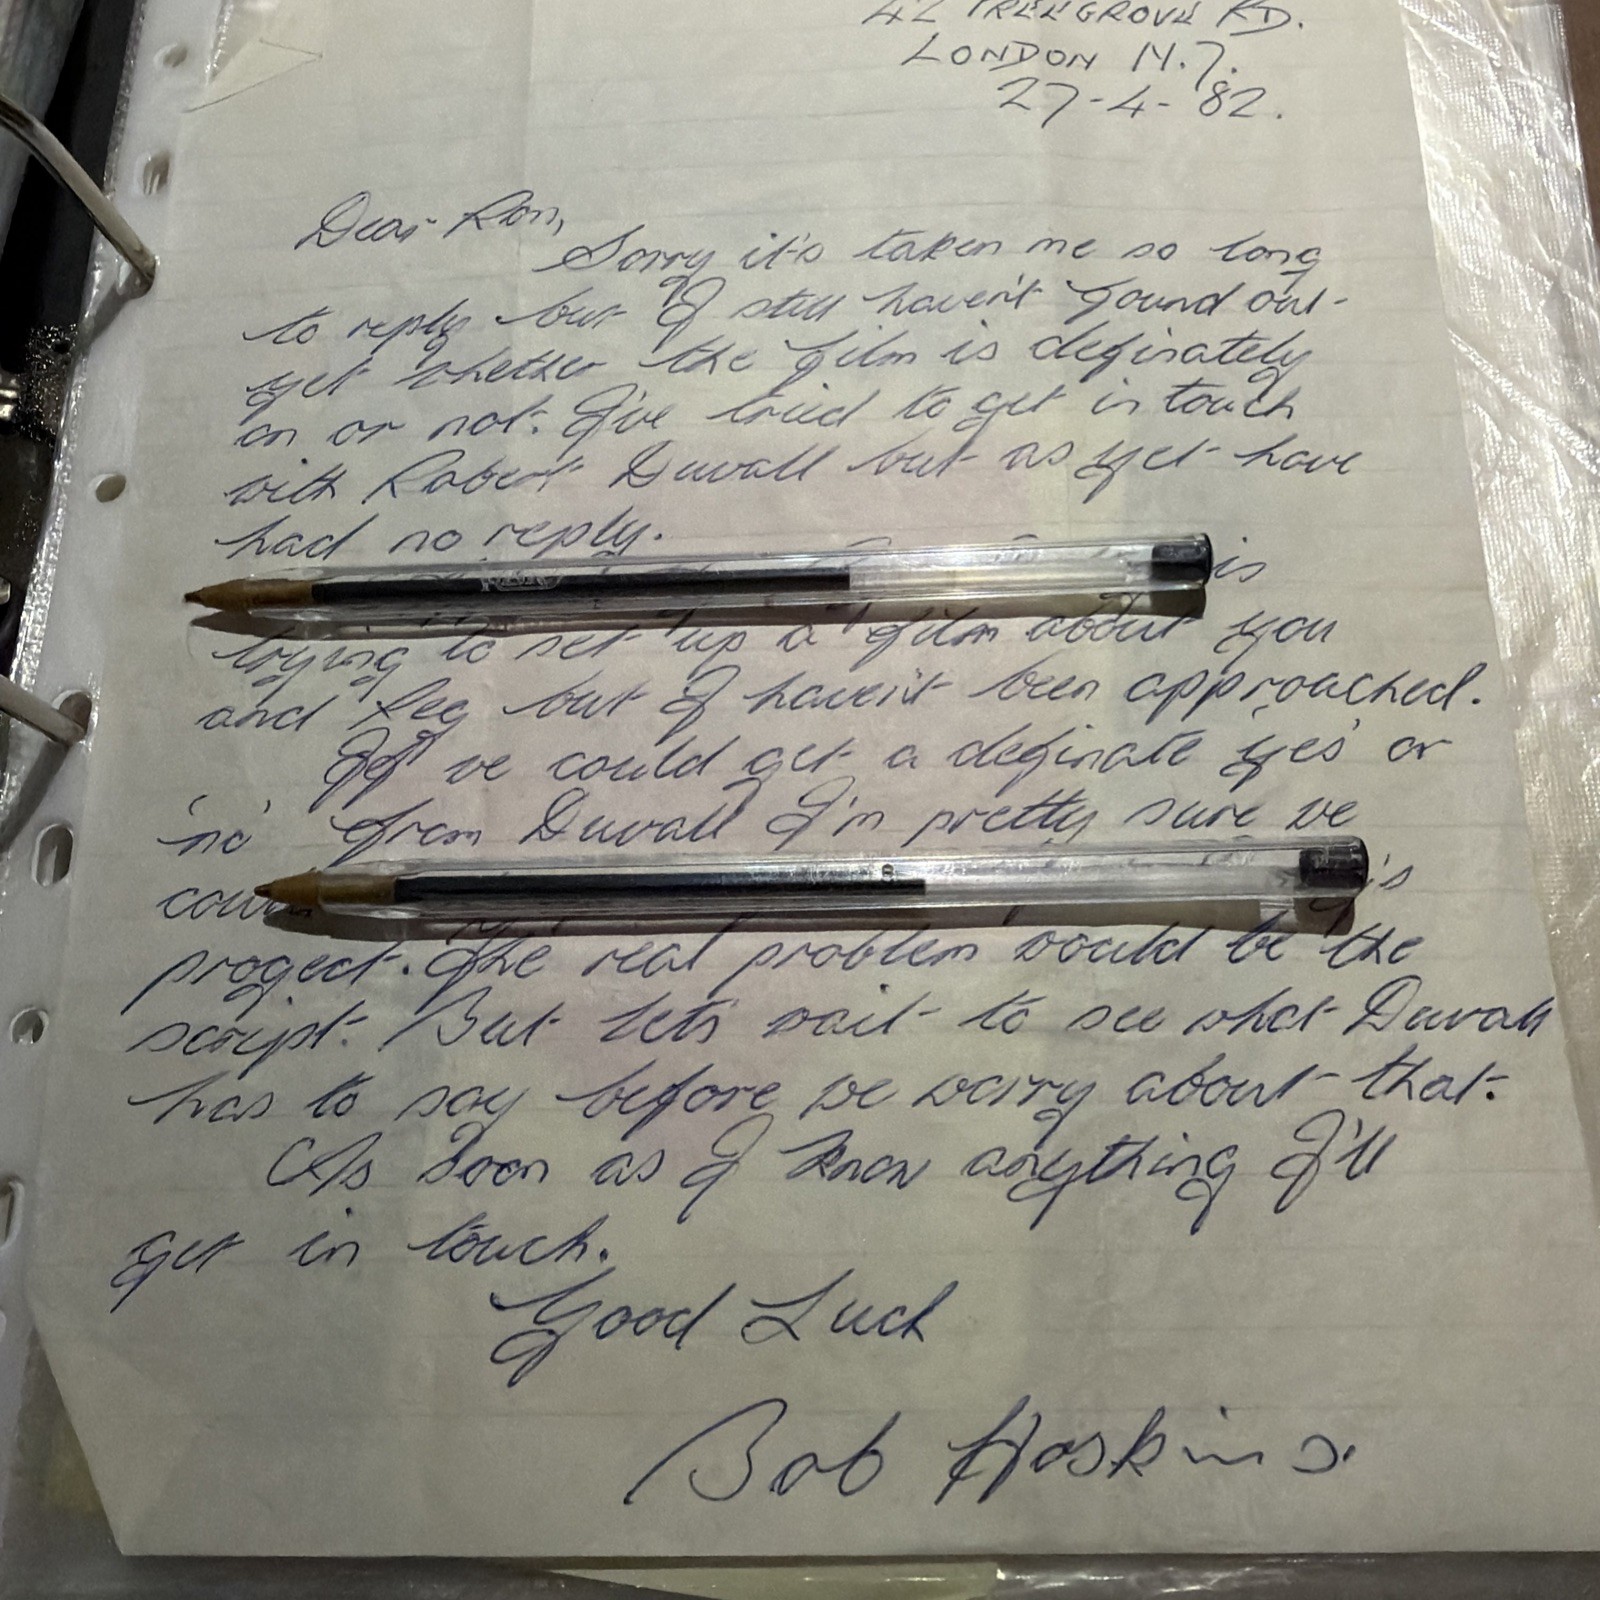 42 TREEGROVE RD.
LONDON N.7.
27-4-'82.
Dear Ron,
Sorry it's taken me so long
to reply but I still haven't found out
yet whether the film is definately
on or not. I've tried to get in touch
with Robert Duvall but as yet have
had no reply.
is
trying to set up a film about you
and Reg but I haven't been approached.
If we could get a definate 'yes' or
'no' from Duvall I'm pretty sure we
project. The real problem would be the
script. But let's wait to see what Duvall
has to say before we worry about that.
As soon as I know anything I'll
get in touch.
Good Luck
Bob Hoskins.